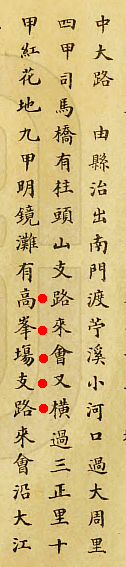 中大路　由縣治出南門渡苧溪小河口過大周里
四甲司馬橋有柱頭山支路來會又橫過三正里十
甲紅花地九甲明鏡灘有高峯場支路來會沿大江